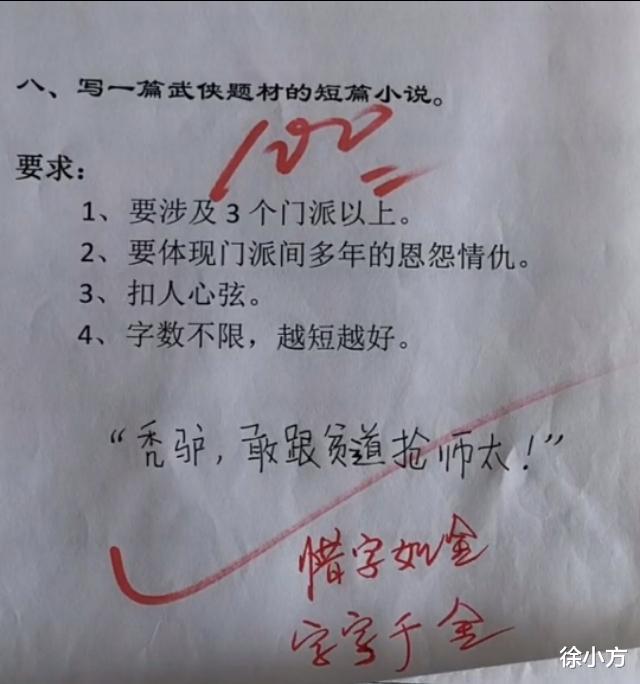 八、写一篇武侠题材的短篇小说。
100
要求：
1、要涉及 3 个门派以上。
2、要体现门派间多年的恩怨情仇。
3、扣人心弦。
4、字数不限，越短越好。
“秃驴，敢跟贫道抢师太！”
惜字如金
字字千金
徐小方